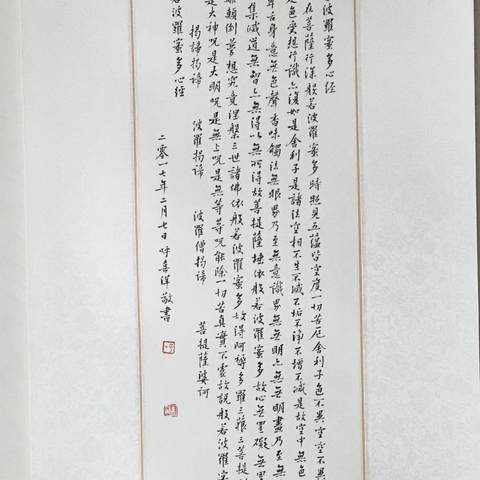 波羅蜜多心經
在菩薩行深般若波羅蜜多時照見五蘊皆空度一切苦厄舍利子色不異空空不異
是色受想行識亦復如是舍利子是諸法空相不生不滅不垢不淨不增不減是故空中無色
舌身意無色聲香味觸法無眼界乃至無意識界無無明亦無無明盡乃至無
集滅道無智亦無得以無所得故菩提薩埵依般若波羅蜜多故心無罣礙無罣
離顛倒夢想究竟涅槃三世諸佛依般若波羅蜜多故得阿耨多羅三藐三菩提
是大神咒是大明咒是無上咒是無等等咒能除一切苦真實不虛故說般若波羅蜜
揭諦揭諦 波羅揭諦 波羅僧揭諦 菩提薩婆訶
若波羅蜜多心經
二零一七年二月七日呼喜洋敬書